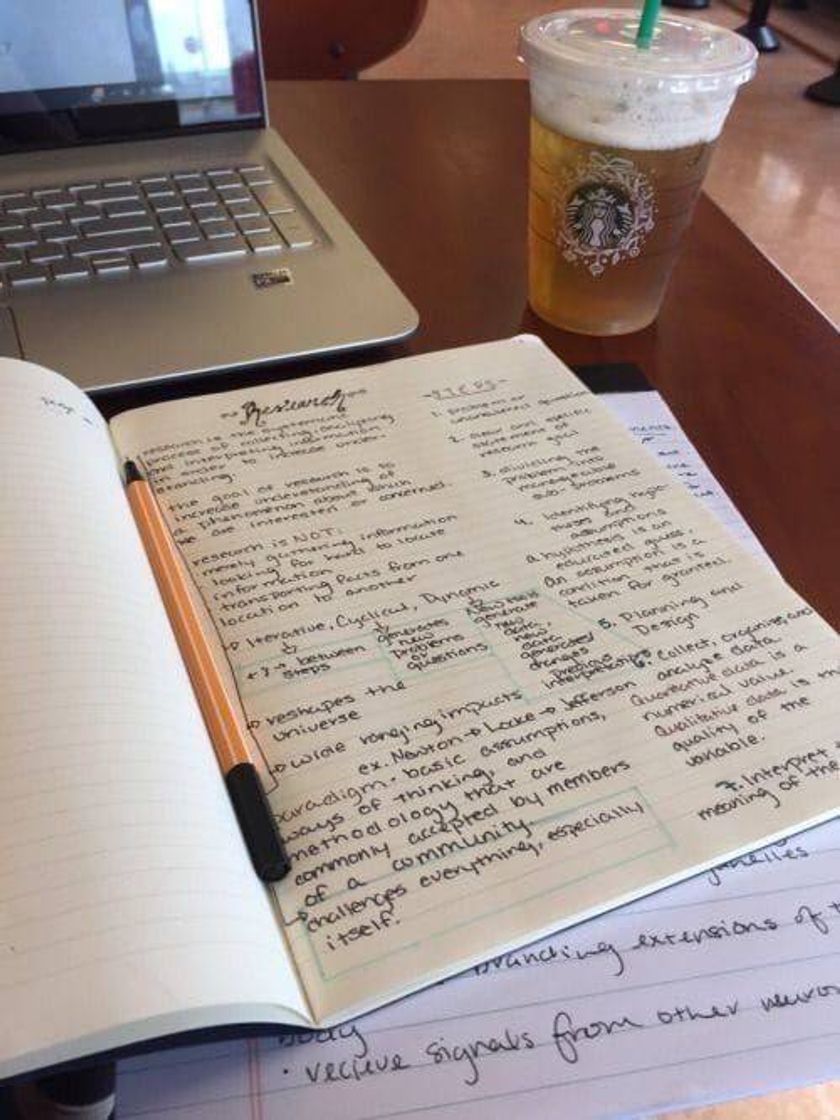 Research
research is the systematic
process of collecting, analyzing
and interpreting information
in order to increase under-
standing.
the goal of research is to
increase understanding of
a phenomenon about which
we are interested or concerned.
research is NOT:
merely gathering information
looking for hard to locate
information
transporting facts from one
location to another
Iterative, Cyclical, Dynamic
between
steps
generates
new
problems
or
questions
generate
new
data,
new
data
generated
changes
previous
interpretations
reshapes the
universe
wide ranging impacts
ex. Newton → Locke → Jefferson
paradigm: basic assumptions,
ways of thinking, and
methodology that are
commonly accepted by members
of a community.
challenges everything, especially
itself.
-STEPS-
1. problem or
unanswered question
2. clear and specific
statement of
research goal
3. dividing the
problem into
manageable
sub-problems
4. Identifying hypo-
theses and
assumptions
a hypothesis is an
educated guess,
an assumption is a
condition that is
taken for granted.
5. Planning and
Design
6. Collect, organize, and
analyze data.
Quantative data is a
numerical value.
Qualitative data is the
quality of the
variable.
7. Interpret
meaning of the
branching extensions of
body
· recieve signals from other neuro